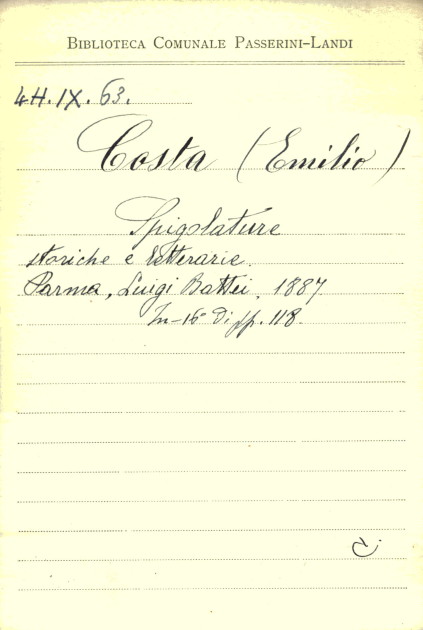 BIBLIOTECA COMUNALE PASSERINI-LANDI
4H.IX.63.
Costa (Emilio)
Spigolature
storiche e letterarie.
Parma, Luigi Battei, 1887
In-16° di pp. 118.